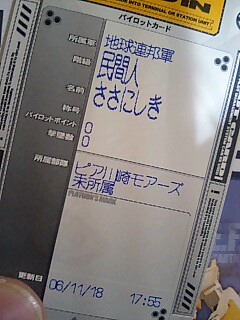 INTO TERMINAL OR STATION UNIT
パイロットカード
所属軍 地球連邦軍
階級 民間人
名前 ささにしき
称号
パイロットポイント 0
撃墜数 0
所属部隊 ピア川崎モアーズ
未所属
PLATOON'S NAME
更新日 06/11/18 17:55